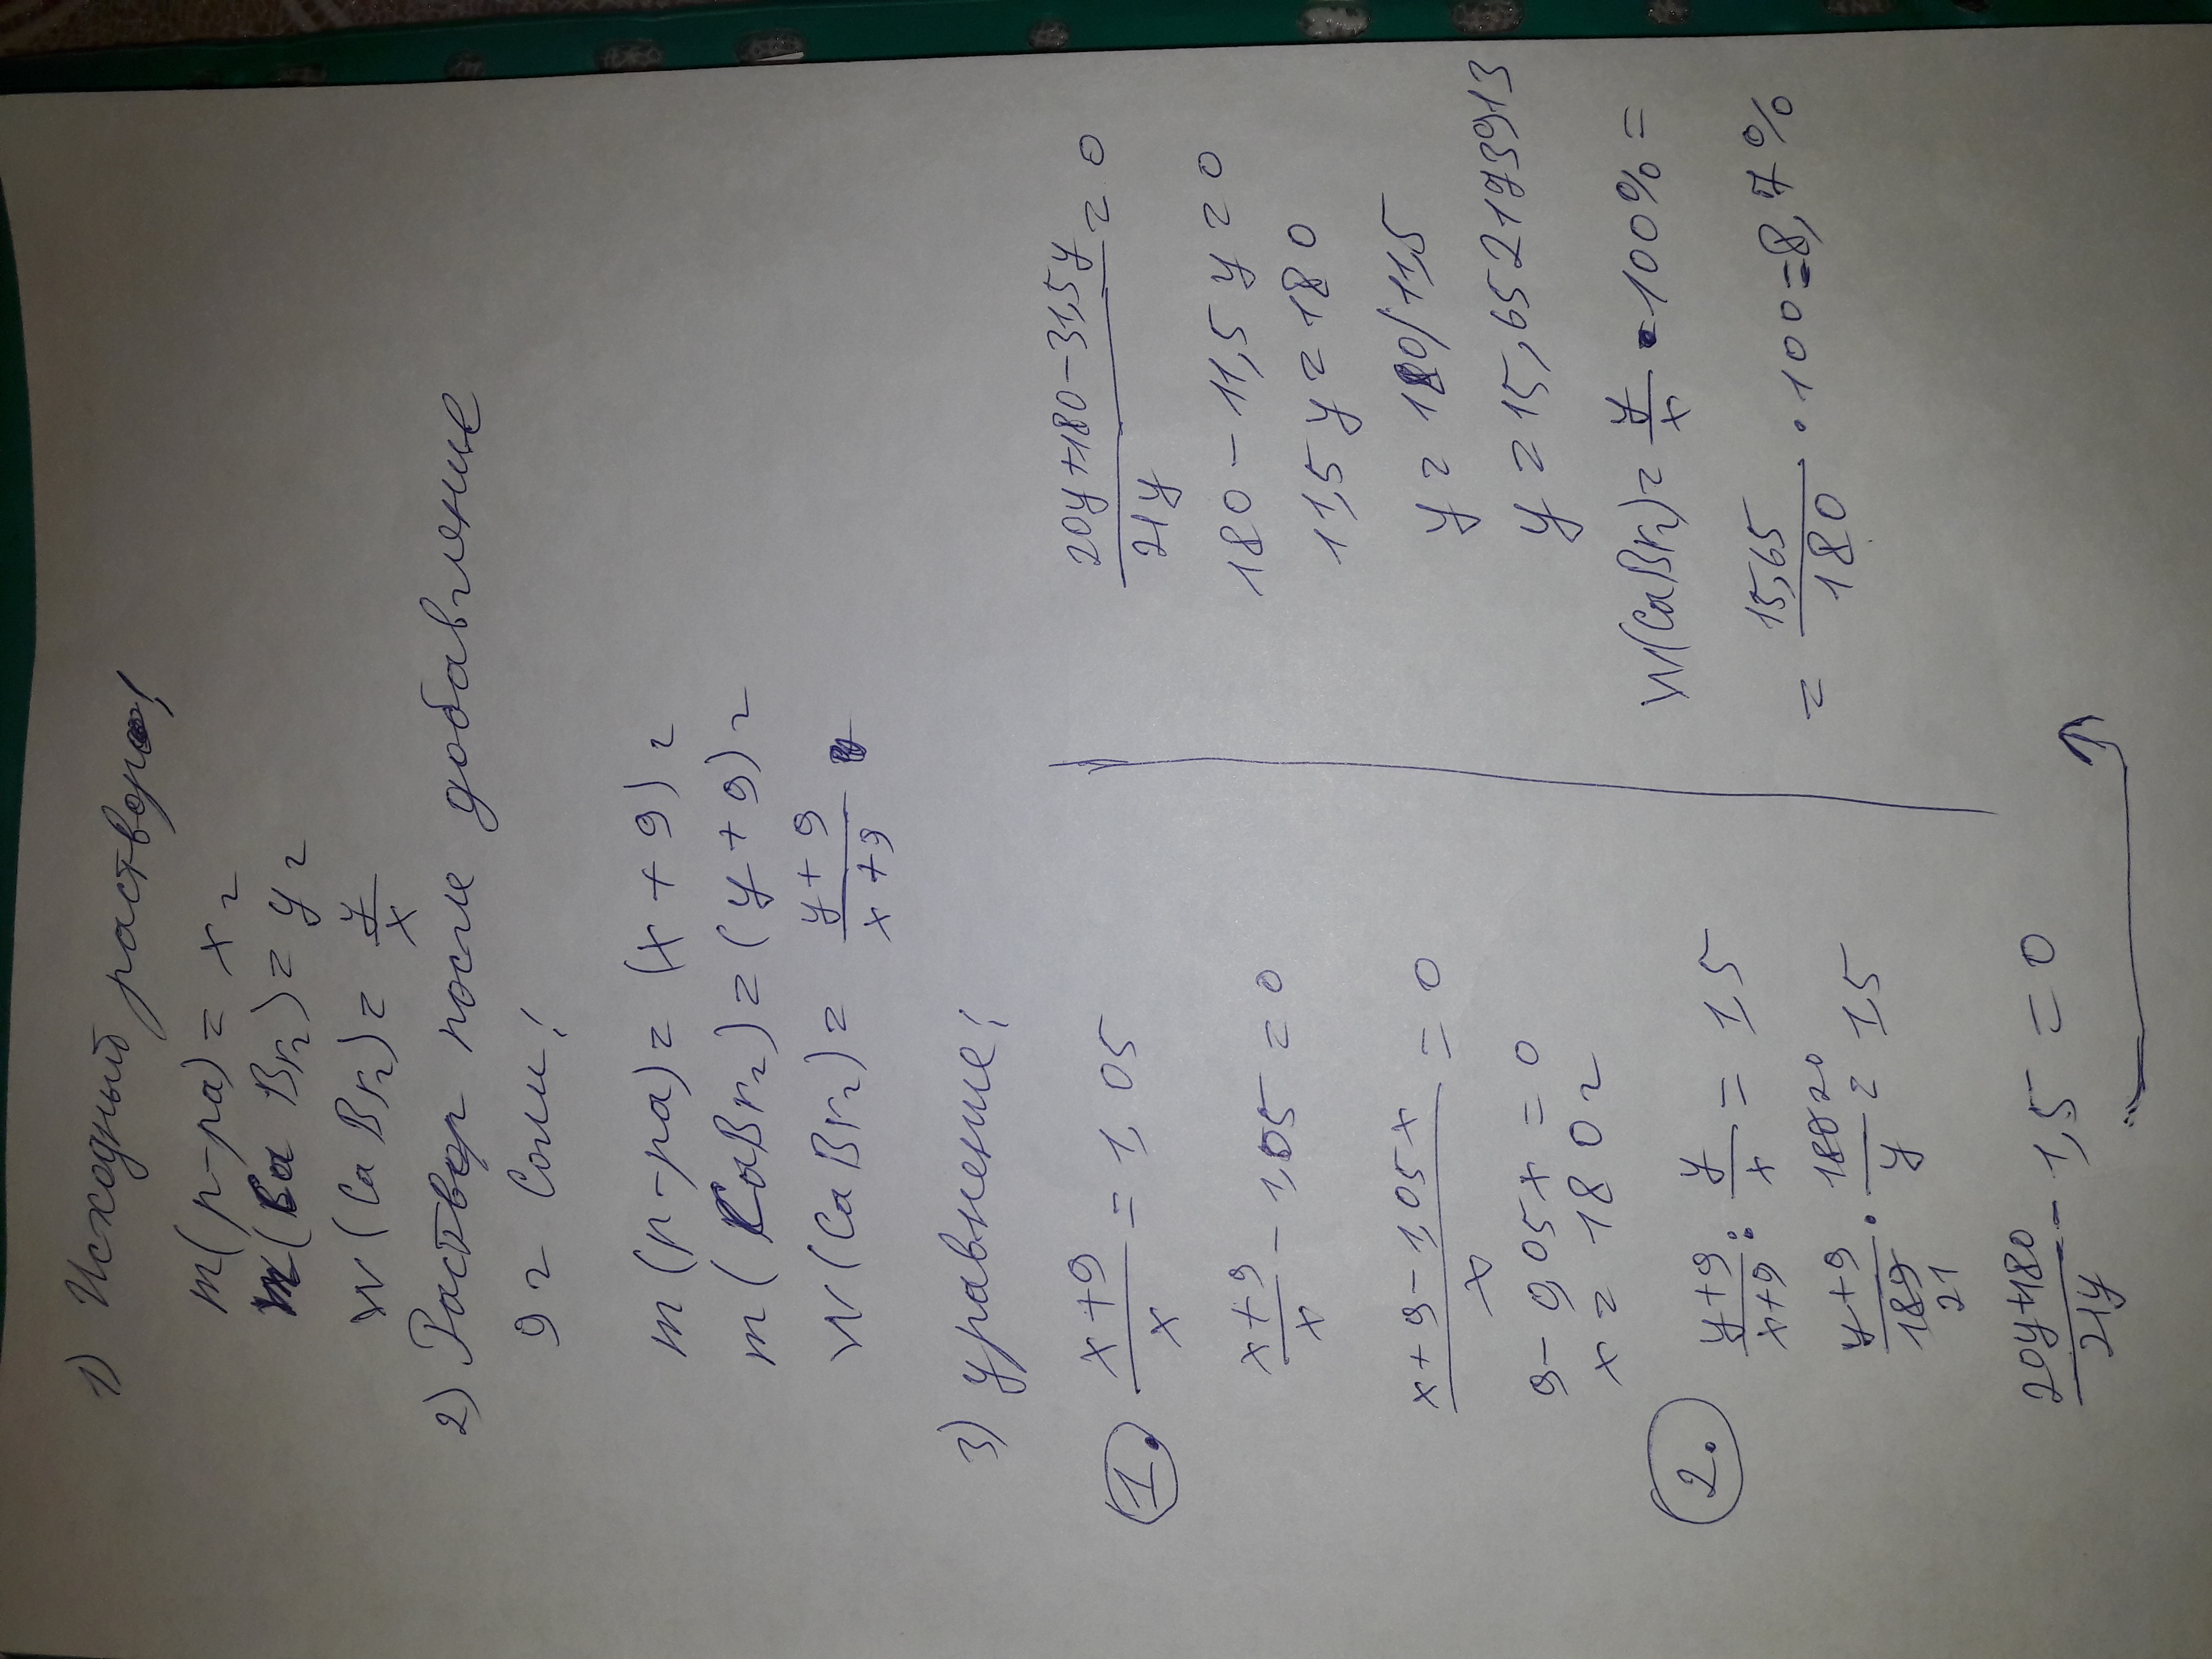 1) Исходный раствор!
m(р-ра) = x г
m(CaBr₂) = y г
W(CaBr₂) = y/x
2) Раствор после добавление
9 г соли!
m(р-ра) = (x+9) г
m(CaBr₂) = (y+9) г
W(CaBr₂) = (y+9)/(x+9)
3) уравнение!
1. (x+9)/x = 1,05
(x+9)/x - 1,05 = 0
(x+9-1,05x)/x = 0
9-9,05x = 0
x = 180 г
2. (y+9)/(x+9) : y/x = 1,5
(y+9)/189 21 · 180 20/y = 1,5
(20y+180)/21y - 1,5 = 0
(20y+180-31,5y)/21y = 0
180-11,5y = 0
11,5y = 180
y = 180/11,5
y = 15,652173913
W(CaBr₂) = y/x · 100% =
= 15,65/180 · 100 = 8,7%